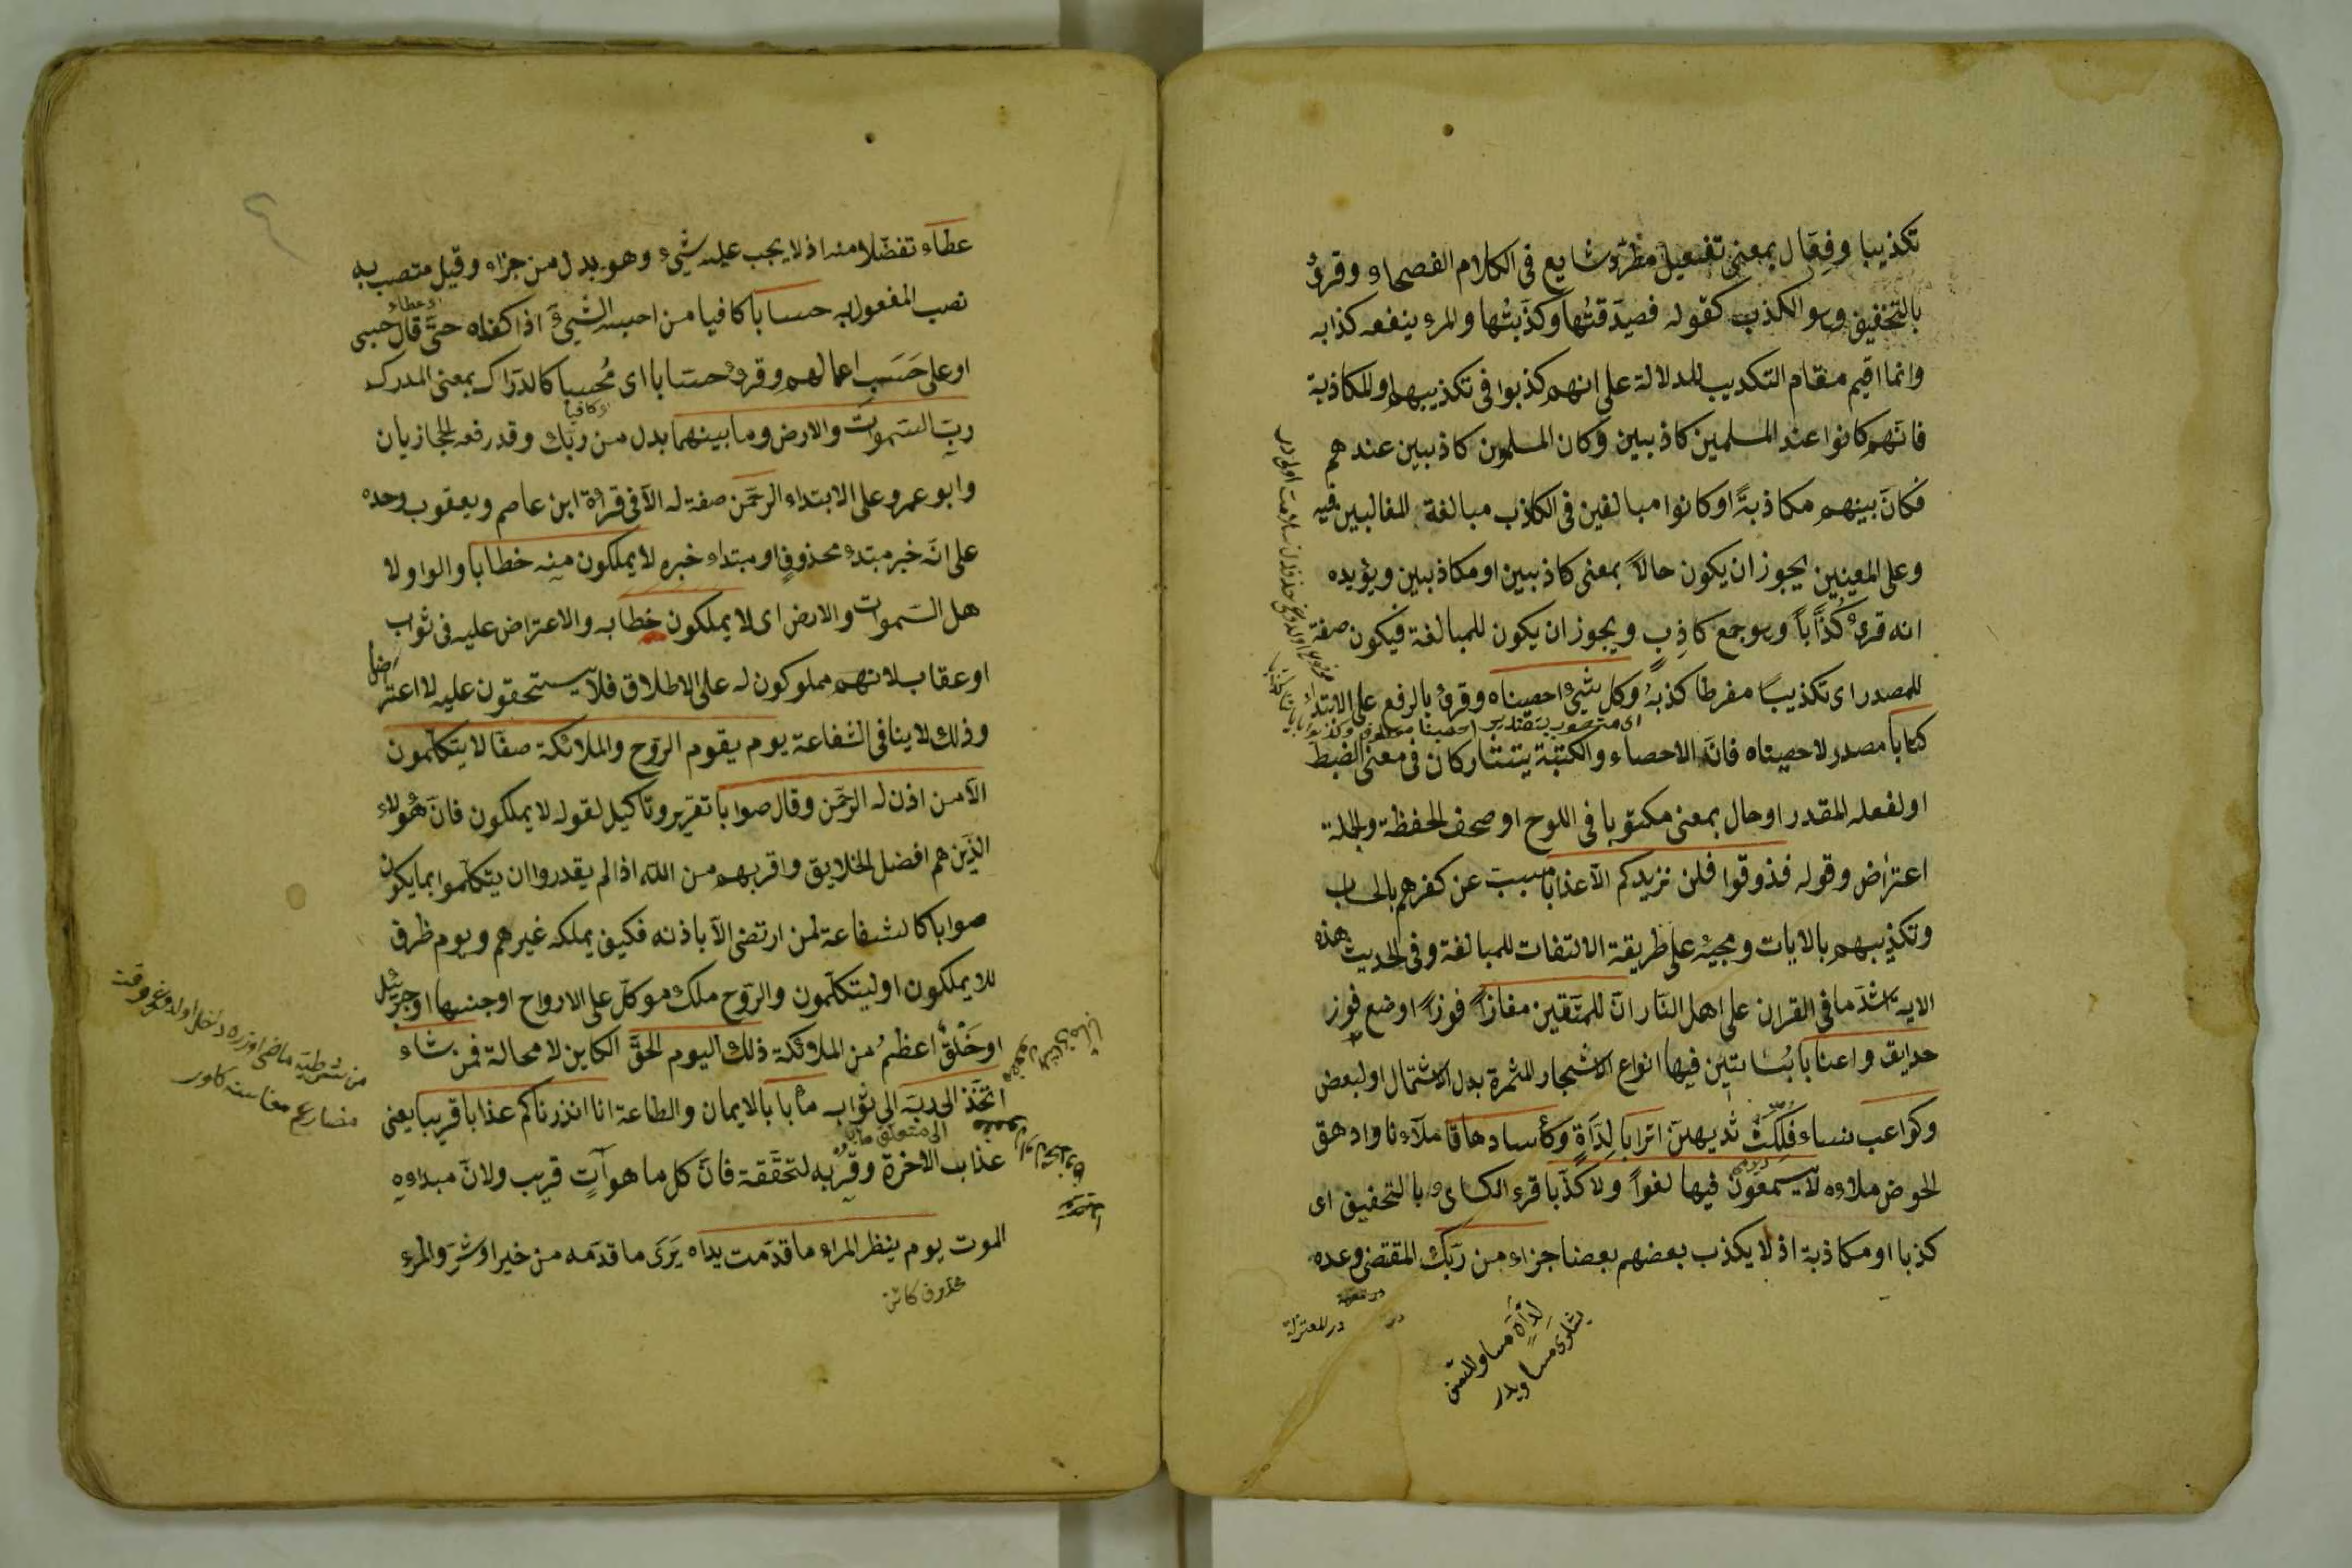 تكذيبا وفعّال بمعنى تفعيل مطّرد شايع فى الكلام الفصحاء وقرئ
بالتخفيف وهو الكذب كقوله فصدقتُها وكذبتُها والمرء ينفعه كذابه
وانما اقيم مقام التكذيب للدلالة على انهم كذبوا فى تكذيبهم او المكاذبة
فانهم كانوا عند المسلمين كاذبين وكان المسلمون كاذبين عندهم
فكانَ بينهم مكاذبةً او كانوا مبالغين فى الكاذب مبالغة المغالبين فيه
وعلى المعنيين يجوز ان يكون حالاً بمعنى كاذبين او مكاذبين ويؤيده
انه قرئ كُذَّاباً وهو جمع كاذِب ويجوز ان يكون للمبالغة فيكون صفة
للمصدر اى تكذيبًا مفرطا كذبهُ وكل شئ احصيناه وقرئ بالرفع على الابتداء
كتاباً مصدر لاحصيناه فانّ الاحصاء والكتبة يتشاركان فى معنى الضبط
او لفعله المقدر او حال بمعنى مكتوبا فى اللوح او صحف الحفظة والجملة
اعتراض وقوله فذوقوا فلن نزيدكم الّا عذابا مسبب عن كفرهم بالحساب
وتكذيبهم بالايات ومجيئه على طريقة الالتفات للمبالغة وفى الحديث هذه
الاية اشدّ ما فى القران على اهل النار انّ للمتّقين مفازاً فوزاً او موضع فوز
حدايق واعنابا بُسَاتين فيها انواع الاشجار المثمرة بدل الاشتمال او لبعض
وكواعب نساء فلكت ثديهنّ اترابا لِدَاةٍ وكأسا دهاقا ملآءنا وادهق
الحوض ملاءه لا يسمعون فيها لغواً ولا كذّابا قرء الكساىٔ بالتخفيف اى
كذبا او مكاذبة اذ لا يكذب بعضهم بعضا جزاء من ربّك المقتضى وعده
در للمعتزلة
لِدَاةٍ مساو للسّن
عطاء تفضّلا منه اذ لا يجب عليه شئ وهو بدل من جزاء وقيل منتصب به
نصب المفعول به حسابا كافيا من احسبه الشئ اذا كفاه حتّى قال حسبى
او على حَسَب اعمالهم وقرئ حسّابا اى مُحسبا كالدرّاك بمعنى المدرك
ربّ السّموات والارض وما بينهما بدل من ربّك وقد رفعه الحجازيان
وابو عمرو على الابتداء الرحمن صفة له الّا فى قرءة ابن عاصم ويعقوب وحده
على انّه خبر مبتدء محذوف او مبتداء خبره لا يملكون منه خطابا والواو لا
هل السّموات والارض اى لا يملكون خطابه والاعتراض عليه فى ثواب
او عقاب لانهم مملوكون له على الاطلاق فلا يستحقون عليه لا اعتراضا
وذلك لا ينافى الشفاعة يوم يقوم الرّوح والملائكة صفّا لا يتكلّمون
الّا من اذن له الرحمن وقال صوابا تقرير وتاكيد لقوله لا يملكون فانّ هؤلاء
الذين هم افضل الخلايق واقربهم من الله اذا لم يقدروا ان يتكلّموا بما يكون
صوابا كالشفاعة لمن ارتضى الّا باذنه فكيف يملكه غيرهم ويوم ظرف
للا يملكون او ليتكلّمون والرّوح ملك موكّل على الارواح او جنسها او جبرئيل
او خَلْقٌ اعظمُ من الملائكة ذلك اليوم الحقّ الكاين لا محالة فمن شاء
اتخّذ الى ربّه الى ثوابه مأبا بالايمان والطاعة انا انذرناكم عذابا قريبا يعنى
عذاب الاخرة وقربه لتحقّقه فانّ كل ما هو آتٍ قريب ولانّ مبداءه
الموت يوم ينظر المراء ما قدّمت يداه يَرَى ما قدّمه من خير او شرّ والمرء
من شرطيه ماضى اوزره داخل اولدوغى وقت
مضارع معناسنه كلور